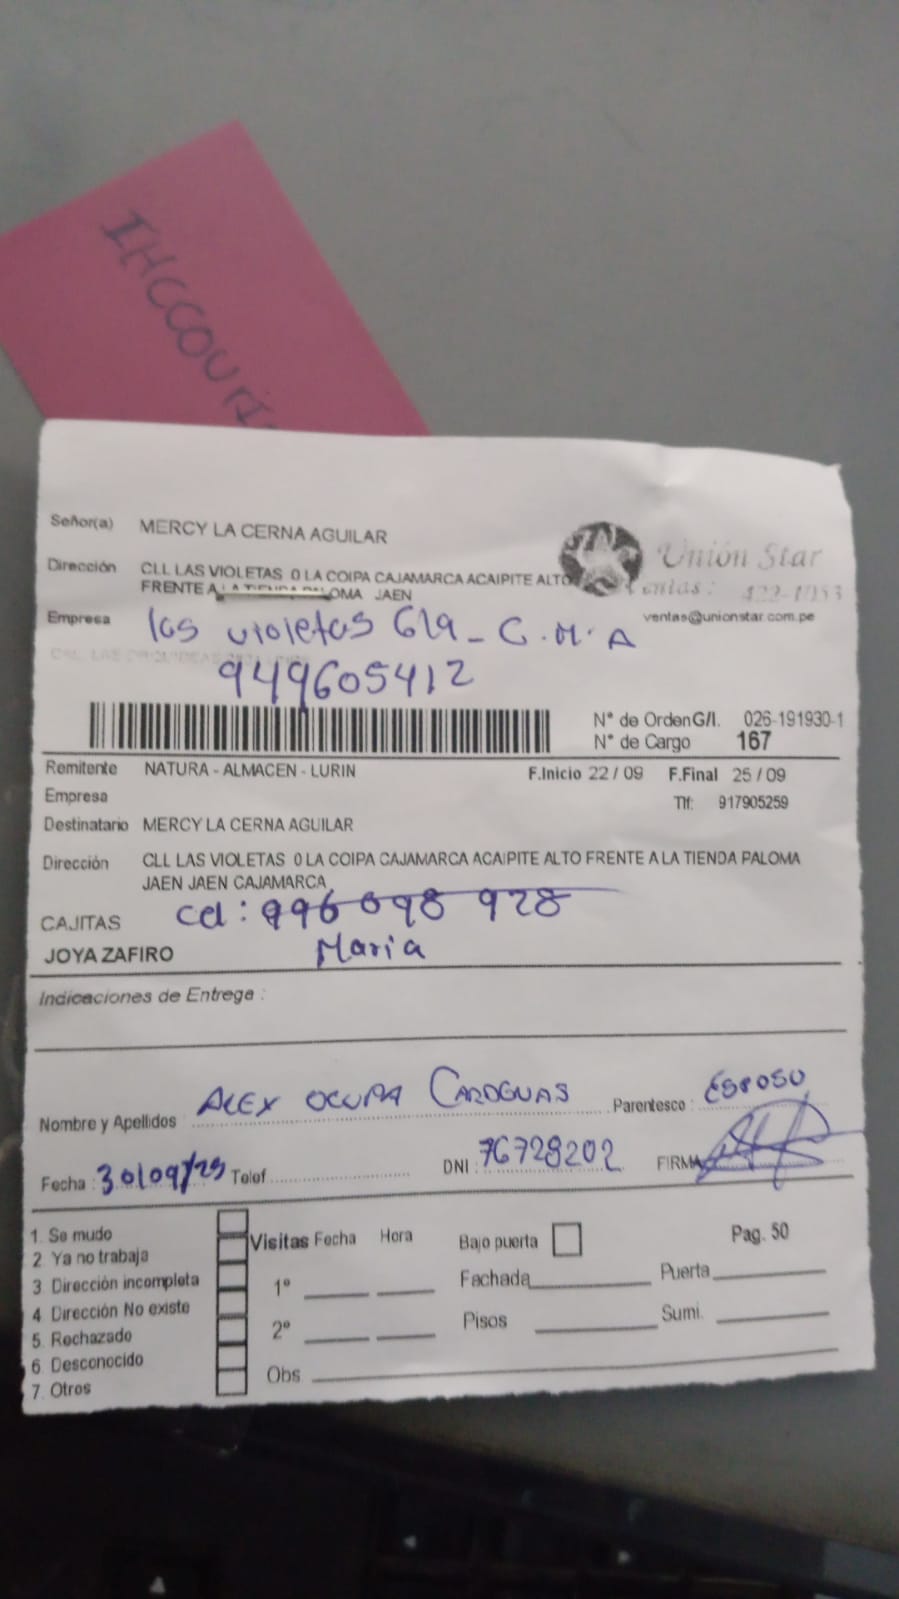 IHCCOURI
Señor(a) MERCY LA CERNA AGUILAR
Dirección CLL LAS VIOLETAS 0 LA COIPA CAJAMARCA ACAIPITE ALTO
FRENTE A LA TIENDA PALOMA JAEN
Unión Star
Ventas: 422-1053
ventas@unionstar.com.pe
Empresa las violetas 619 - C.M.A
949605412
N° de Orden G/I. 026-191930-1
N° de Cargo 167
Remitente NATURA - ALMACEN - LURIN F.Inicio 22 / 09 F.Final 25 / 09
Empresa Tlf: 917905259
Destinatario MERCY LA CERNA AGUILAR
Dirección CLL LAS VIOLETAS 0 LA COIPA CAJAMARCA ACAIPITE ALTO FRENTE A LA TIENDA PALOMA
JAEN JAEN CAJAMARCA
CAJITAS cel: 996098928
JOYA ZAFIRO Maria
Indicaciones de Entrega :
Nombre y Apellidos : ALEX OCUPA Parentesco : ESPOSO
Fecha : 30/09/25 Telef DNI : 76728202 FIRMA
1. Se mudo
2. Ya no trabaja
3. Dirección incompleta
4. Dirección No existe
5. Rechazado
6. Desconocido
7. Otros
Visitas Fecha Hora
1°
2°
Obs
Bajo puerta Pag. 50
Fachada Puerta
Pisos Sumi.